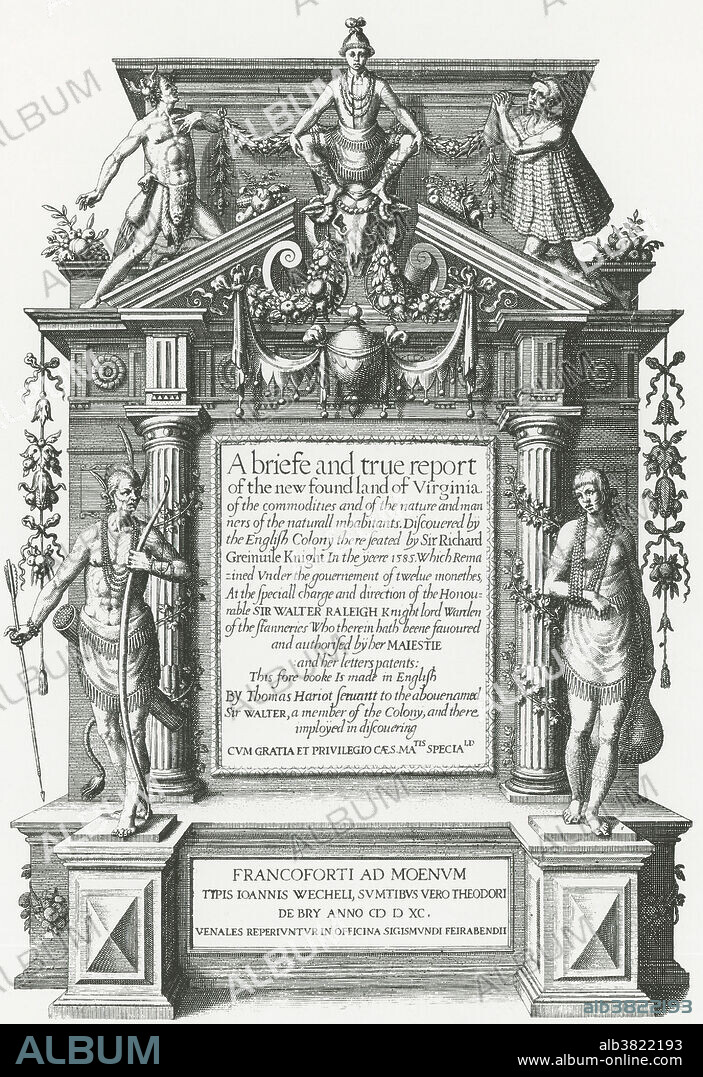 A briefe and true report
of the new found land of Virginia.
of the commodities and of the nature and man
ners of the naturall inhabitants. Discouered by
the English Colony there seated by Sir Richard
Greinuile Knight In the yeere 1585. Which Rema
ined Vnder the gouernement of twelue monethes,
At the speciall charge and direction of the Honou-
rable SIR WALTER RALEIGH Knight lord Warden
of the stanneries Who therein hath beene fauoured
and authorised by her MAIESTIE
and her letters patents:
This fore booke Is made in English
By Thomas Hariot seruant to the abouenamed
Sir WALTER, a member of the Colony, and there
imployed in discouering
CVM GRATIA ET PRIVILEGIO CÆS. MATIS SPECIALD
FRANCOFORTI AD MOENVM
TYPIS IOANNIS WECHELI, SVMTIBVS VERO THEODORI
DE BRY ANNO CIƆ IƆ XC.
VENALES REPERIVNTVR IN OFFICINA SIGISMVNDI FEIRABENDII
alb3822193
ALBUM
alb3822193
www.album-online.com